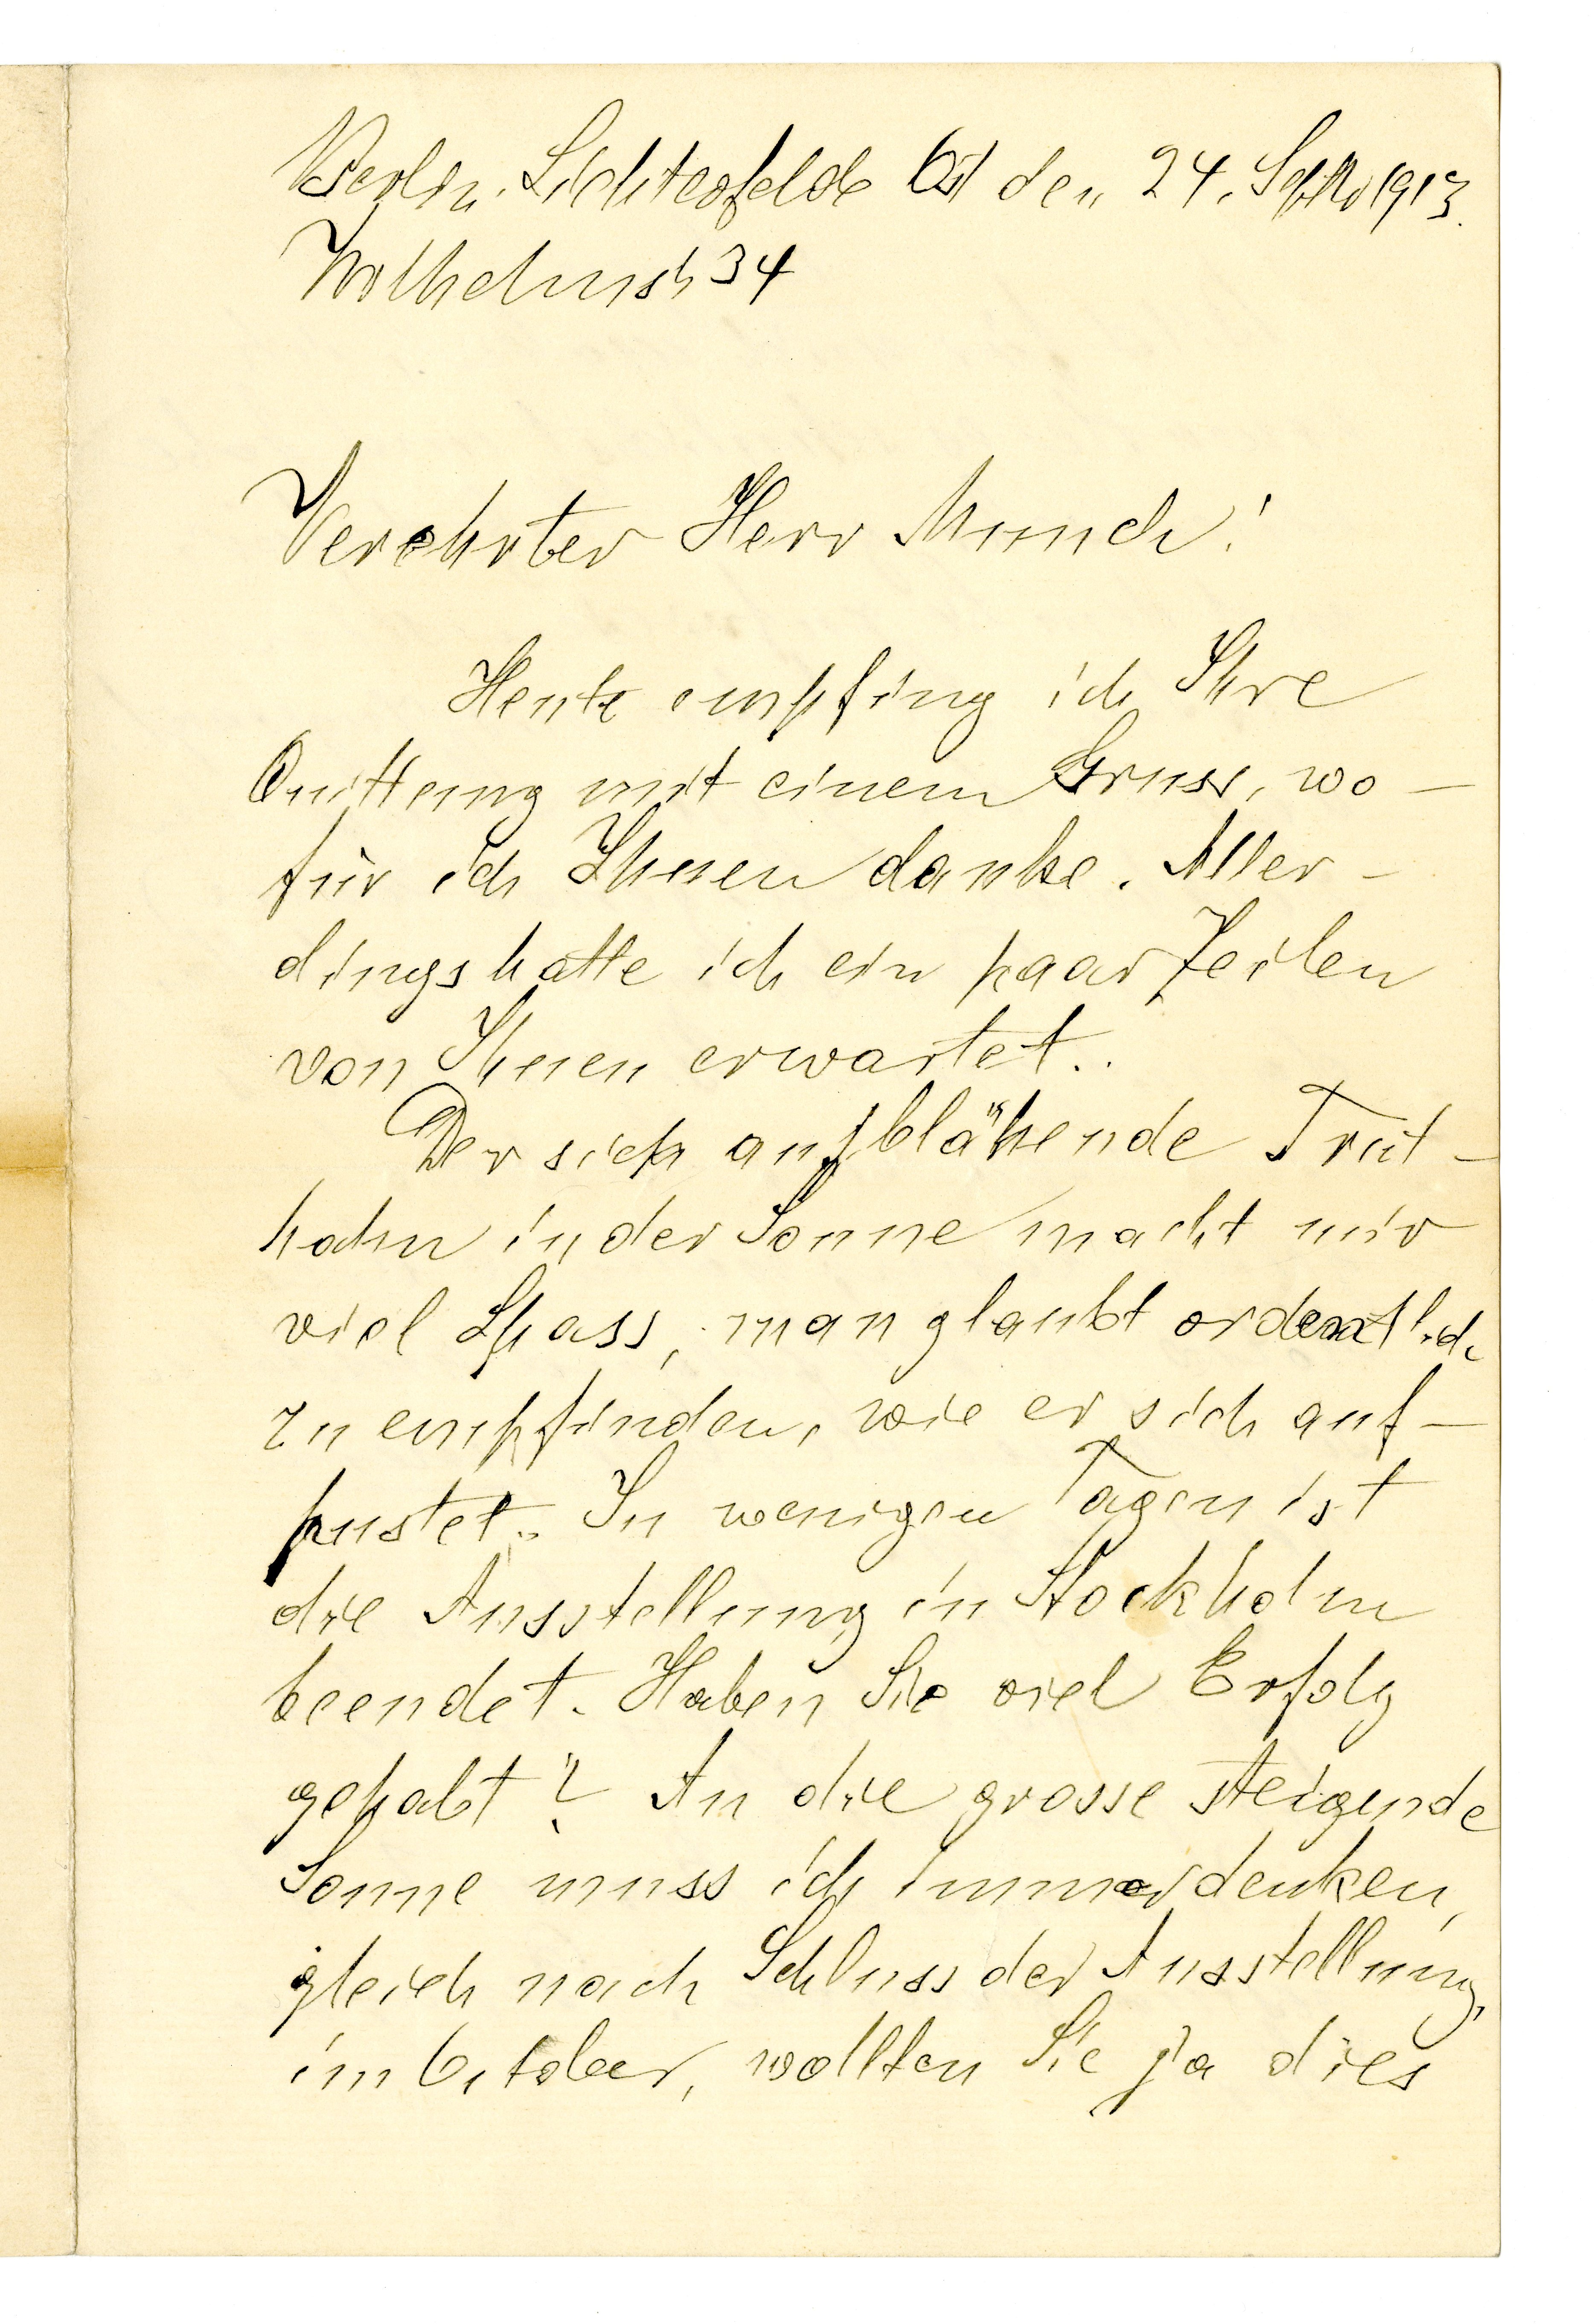 Berlin-Lichterfelde Ost den 24. Septbr 1913.
Wilhelmstr 34
Verehrter Herr Munch!
Heute empfing ich Ihre
Quittung mit einem Gruss, wo-
für ich Ihnen danke. Aller-
dings hatte ich ein paar Zeilen
von Ihnen erwartet..
Der sich aufblähende Trut-
hahn in der Sonne macht mir
viel Spass, man glaubt ordentlich
zu empfinden, wie er sich auf-
pustet. In wenigen Tagen ist
die Ausstellung in Stockholm
beendet. Haben Sie viel Erfolg
gehabt? An die grosse steigende
Sonne muss ich immer denken,
gleich nach Schluss der Ausstellung,
im October, wollten Sie ja dies